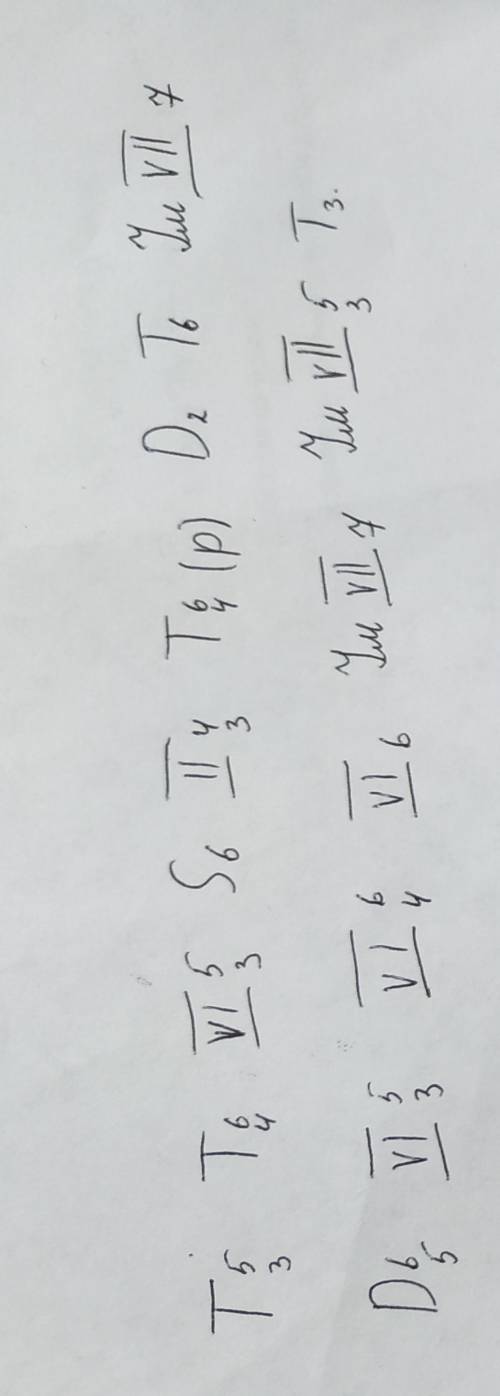 T 5 3 T 6 4 VI 5 3 S6 II 4 3 T 6 4 (р) D2 T6 Ум VII 7
D 6 5 VI 5 3 VI 6 4 VI 6 Ум VII 7 Ум VII 5 3 T3.